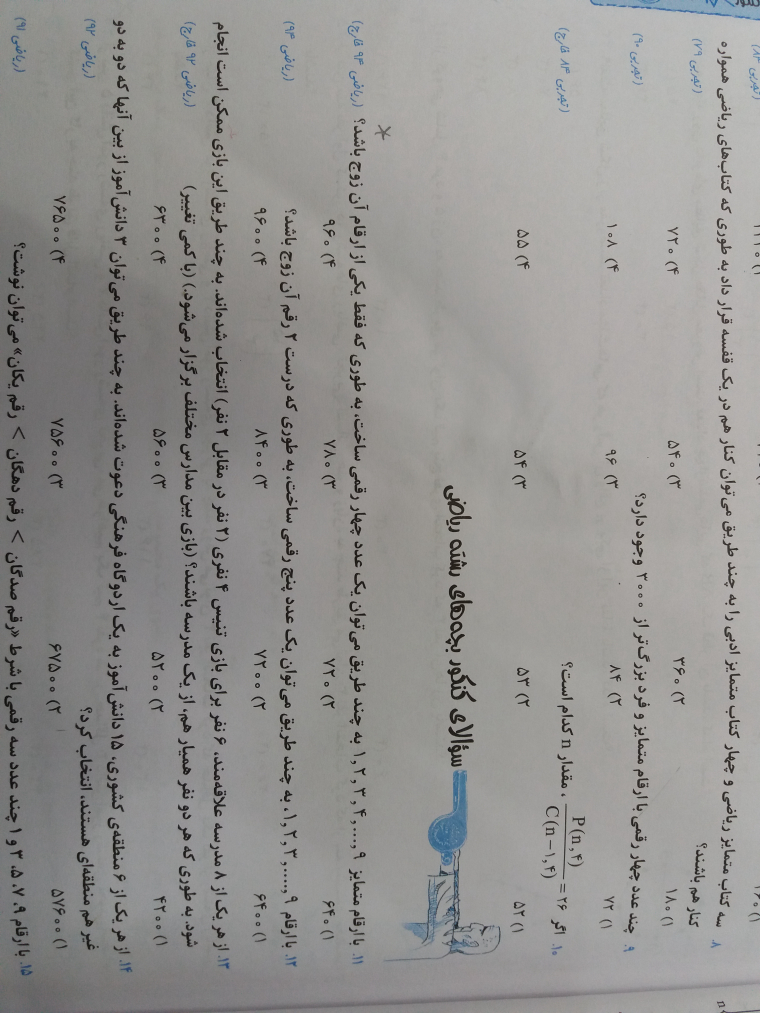 ۸. سه کتاب متمایز ریاضی و چهار کتاب متمایز ادبی را به چند طریق می‌توان کنار هم در یک قفسه قرار داد به طوری که کتاب‌های ریاضی همواره
کنار هم باشند؟ (تجربی ۷۹)
۱) ۱۸۰ ۲) ۳۶۰ ۳) ۵۴۰ ۴) ۷۲۰
۹. چند عدد چهار رقمی با ارقام متمایز و فرد بزرگ‌تر از ۳۰۰۰ وجود دارد؟ (تجربی ۹۰)
۱) ۷۲ ۲) ۸۴ ۳) ۹۶ ۴) ۱۰۸
۱۰. اگر P(n,۴)/C(n-۱,۴) = ۲۶ ، مقدار n کدام است؟ (تجربی ۸۴ خارج)
۱) ۵۲ ۲) ۵۳ ۳) ۵۴ ۴) ۵۵
سؤالای کنکور بچه‌های رشته ریاضی
۱۱. با ارقام متمایز ۱,۲,۳,۴,...,۹ به چند طریق می‌توان یک عدد چهار رقمی ساخت، به طوری که فقط یکی از ارقام آن زوج باشد؟ (ریاضی ۹۴ خارج)
۱) ۶۴۰ ۲) ۷۲۰ ۳) ۷۸۰ ۴) ۹۶۰
۱۲. با ارقام ۱,۲,۳,...,۹، به چند طریق می‌توان یک عدد پنج رقمی ساخت، به طوری که درست ۲ رقم آن زوج باشد؟ (ریاضی ۹۴)
۱) ۶۴۰۰ ۲) ۷۲۰۰ ۳) ۸۴۰۰ ۴) ۹۶۰۰
۱۳. از هر یک از ۸ مدرسه علاقه‌مند، ۶ نفر برای بازی تنیس ۴ نفری (۲ نفر در مقابل ۲ نفر) انتخاب شده‌اند. به چند طریق این بازی ممکن است انجام
شود. به طوری که هر دو نفر همیار هم، از یک مدرسه باشند؟ (بازی بین مدارس مختلف برگزار می‌شود.) (با کمی تغییر) (ریاضی ۹۲ خارج)
۱) ۴۲۰۰ ۲) ۵۲۰۰ ۳) ۵۶۰۰ ۴) ۶۳۰۰
۱۴. از هر یک از ۶ منطقه‌ی کشوری، ۱۵ دانش آموز به یک اردوگاه فرهنگی دعوت شده‌اند. به چند طریق می‌توان ۳ دانش آموز از بین آنها که دو به دو
غیر هم منطقه‌ای هستند، انتخاب کرد؟ (ریاضی ۹۲)
۱) ۵۷۶۰۰ ۲) ۶۷۵۰۰ ۳) ۷۵۶۰۰ ۴) ۷۶۵۰۰
۱۵. با ارقام ۹، ۷، ۵، ۳ و ۱ چند عدد سه رقمی با شرط «رقم صدگان > رقم دهگان > رقم یکان» می‌توان نوشت؟ (ریاضی ۹۱)